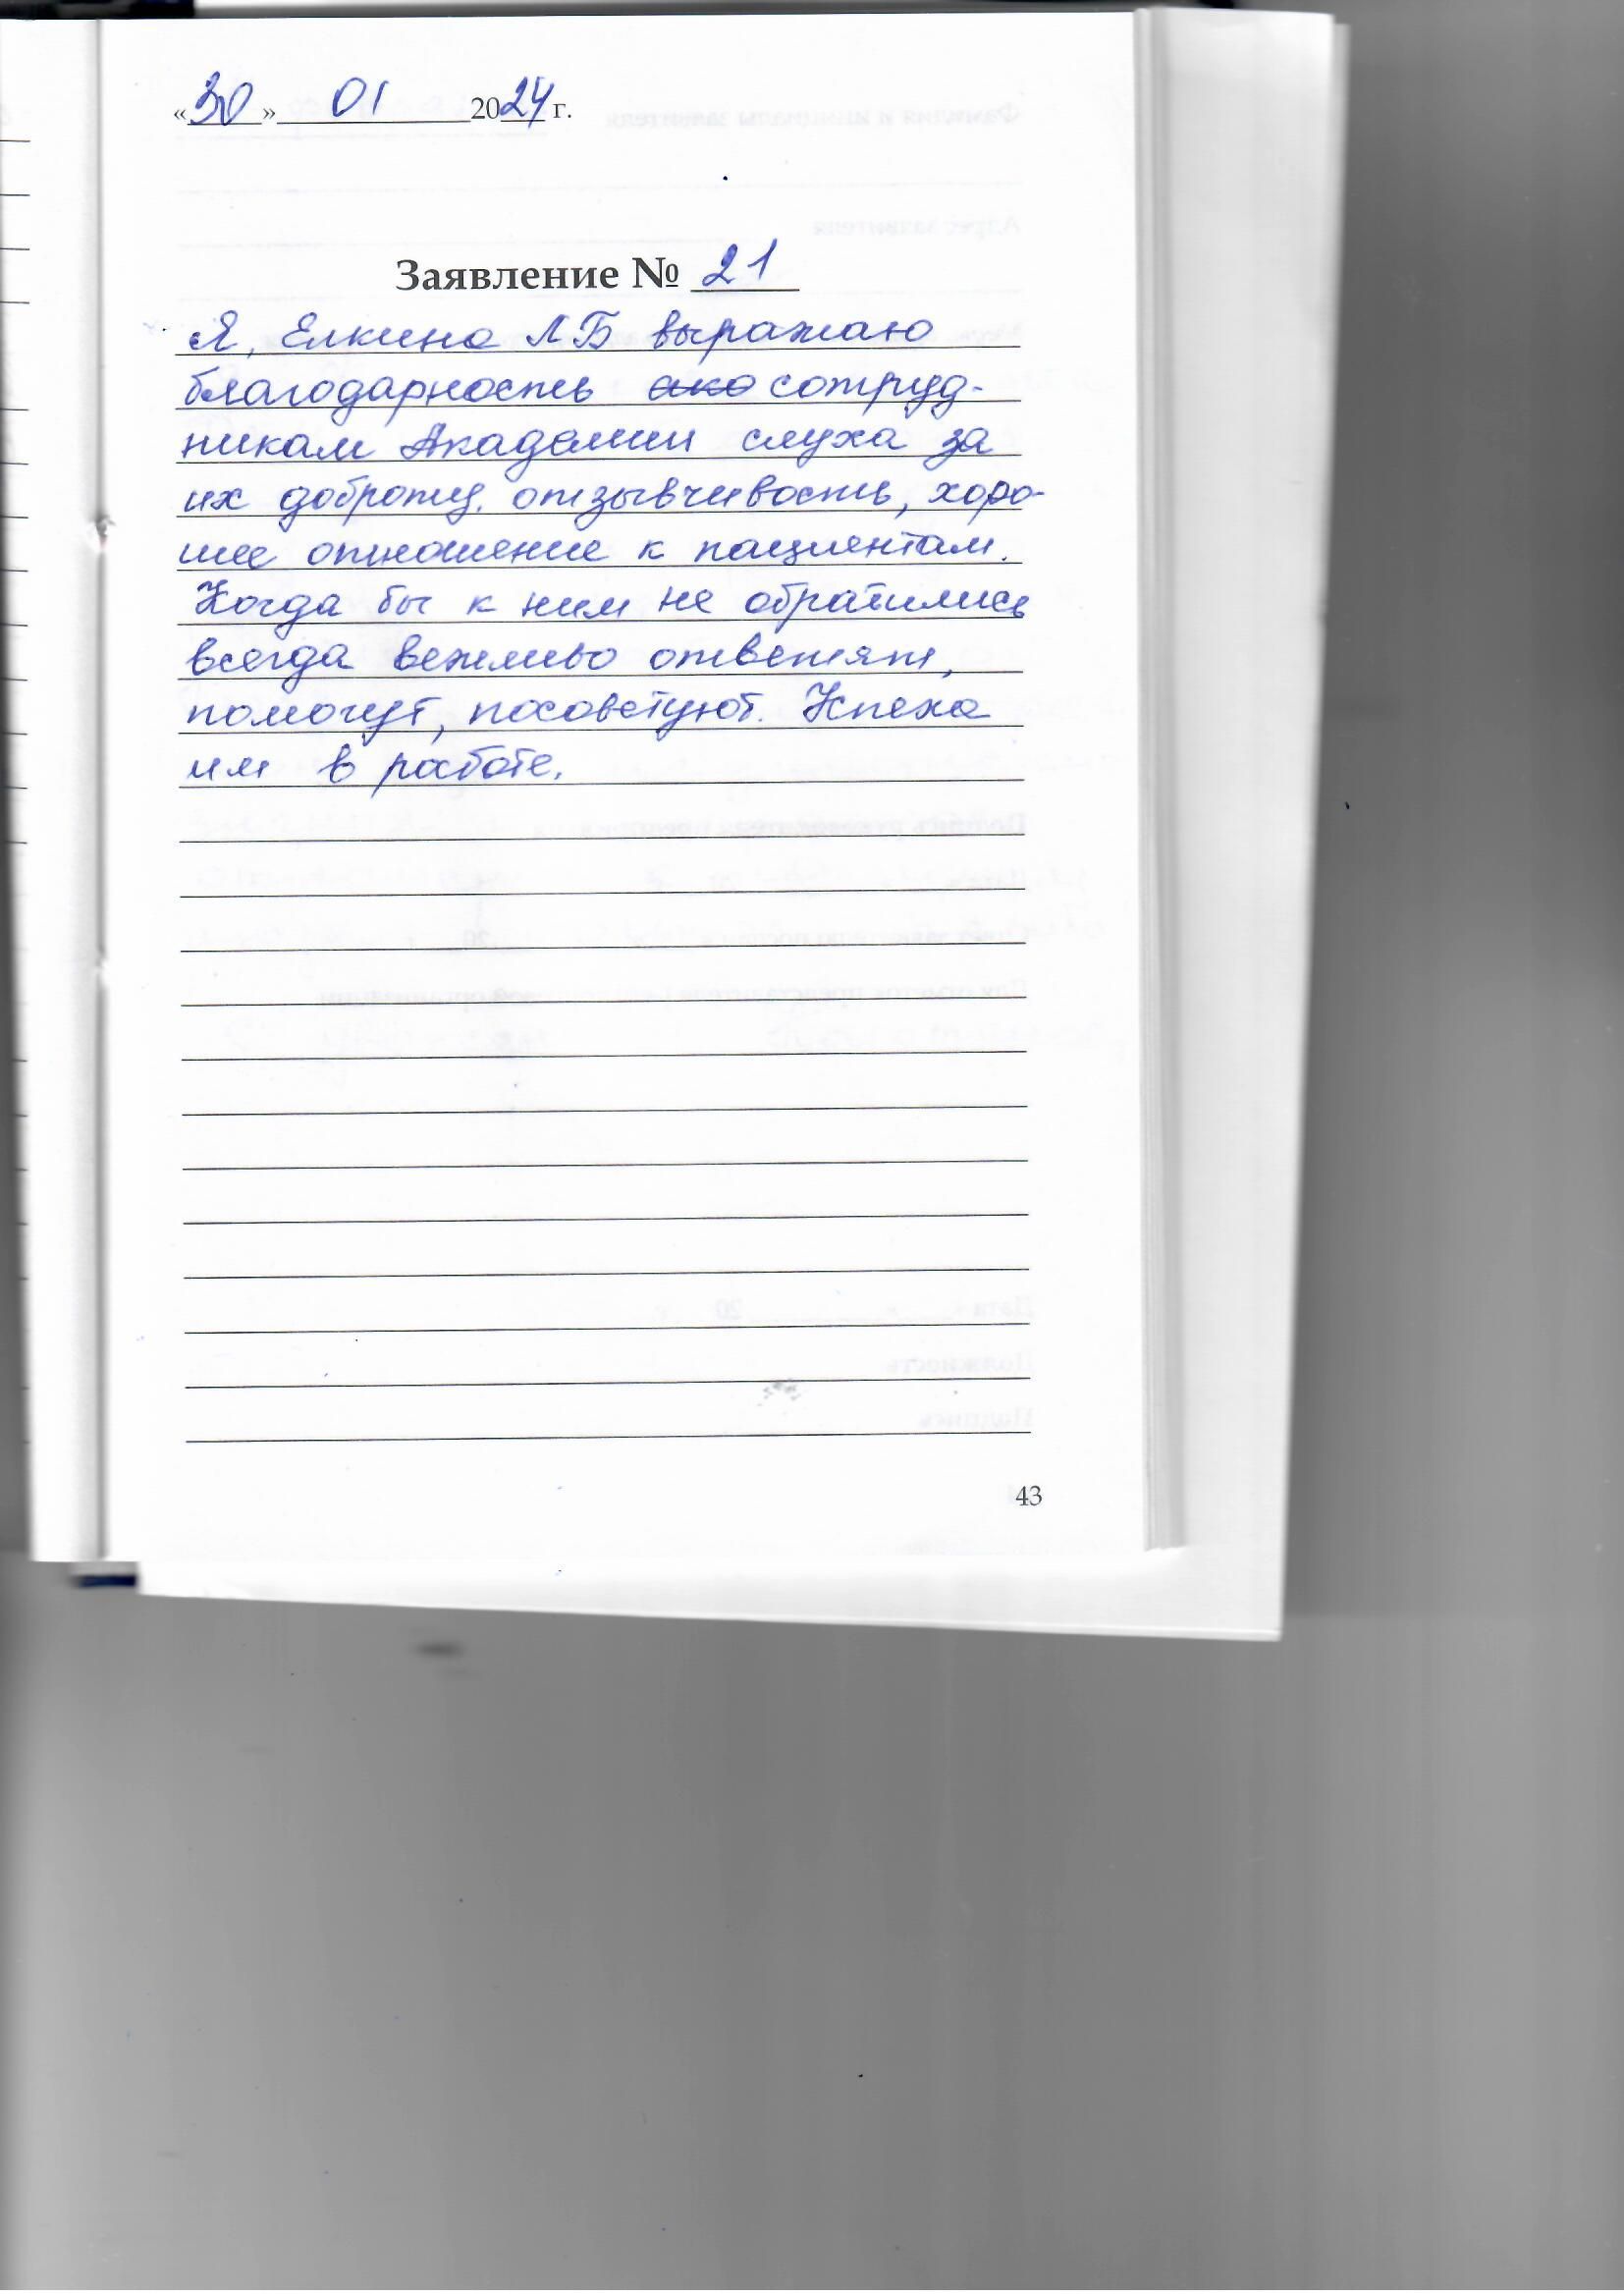 «30» 01 2024 г.
Заявление № 21
Я, Елкина Л Б выражаю
благодарность сотруд-
никам Академии слуха за
их доброту, отзывчивость, хоро-
шее отношение к пациентам.
Когда бы к ним не обратились
всегда вежливо ответят,
помогут, посоветуют. Успеха
им в работе.
43